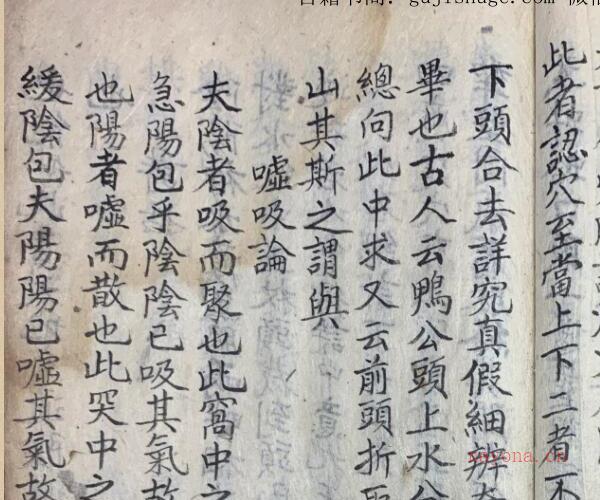 此者認穴至當上下二者不
下頭合去詳究真假細辨
畢也古人云鴨公頭上水分
總向此中求又云前頭折
山其斯之謂與
噓吸論
夫陰者吸而聚也此窩中之
急陽包乎陰陰已吸其氣故
也陽者噓而散也此突中之
緩陰包夫陽陽已噓其氣故